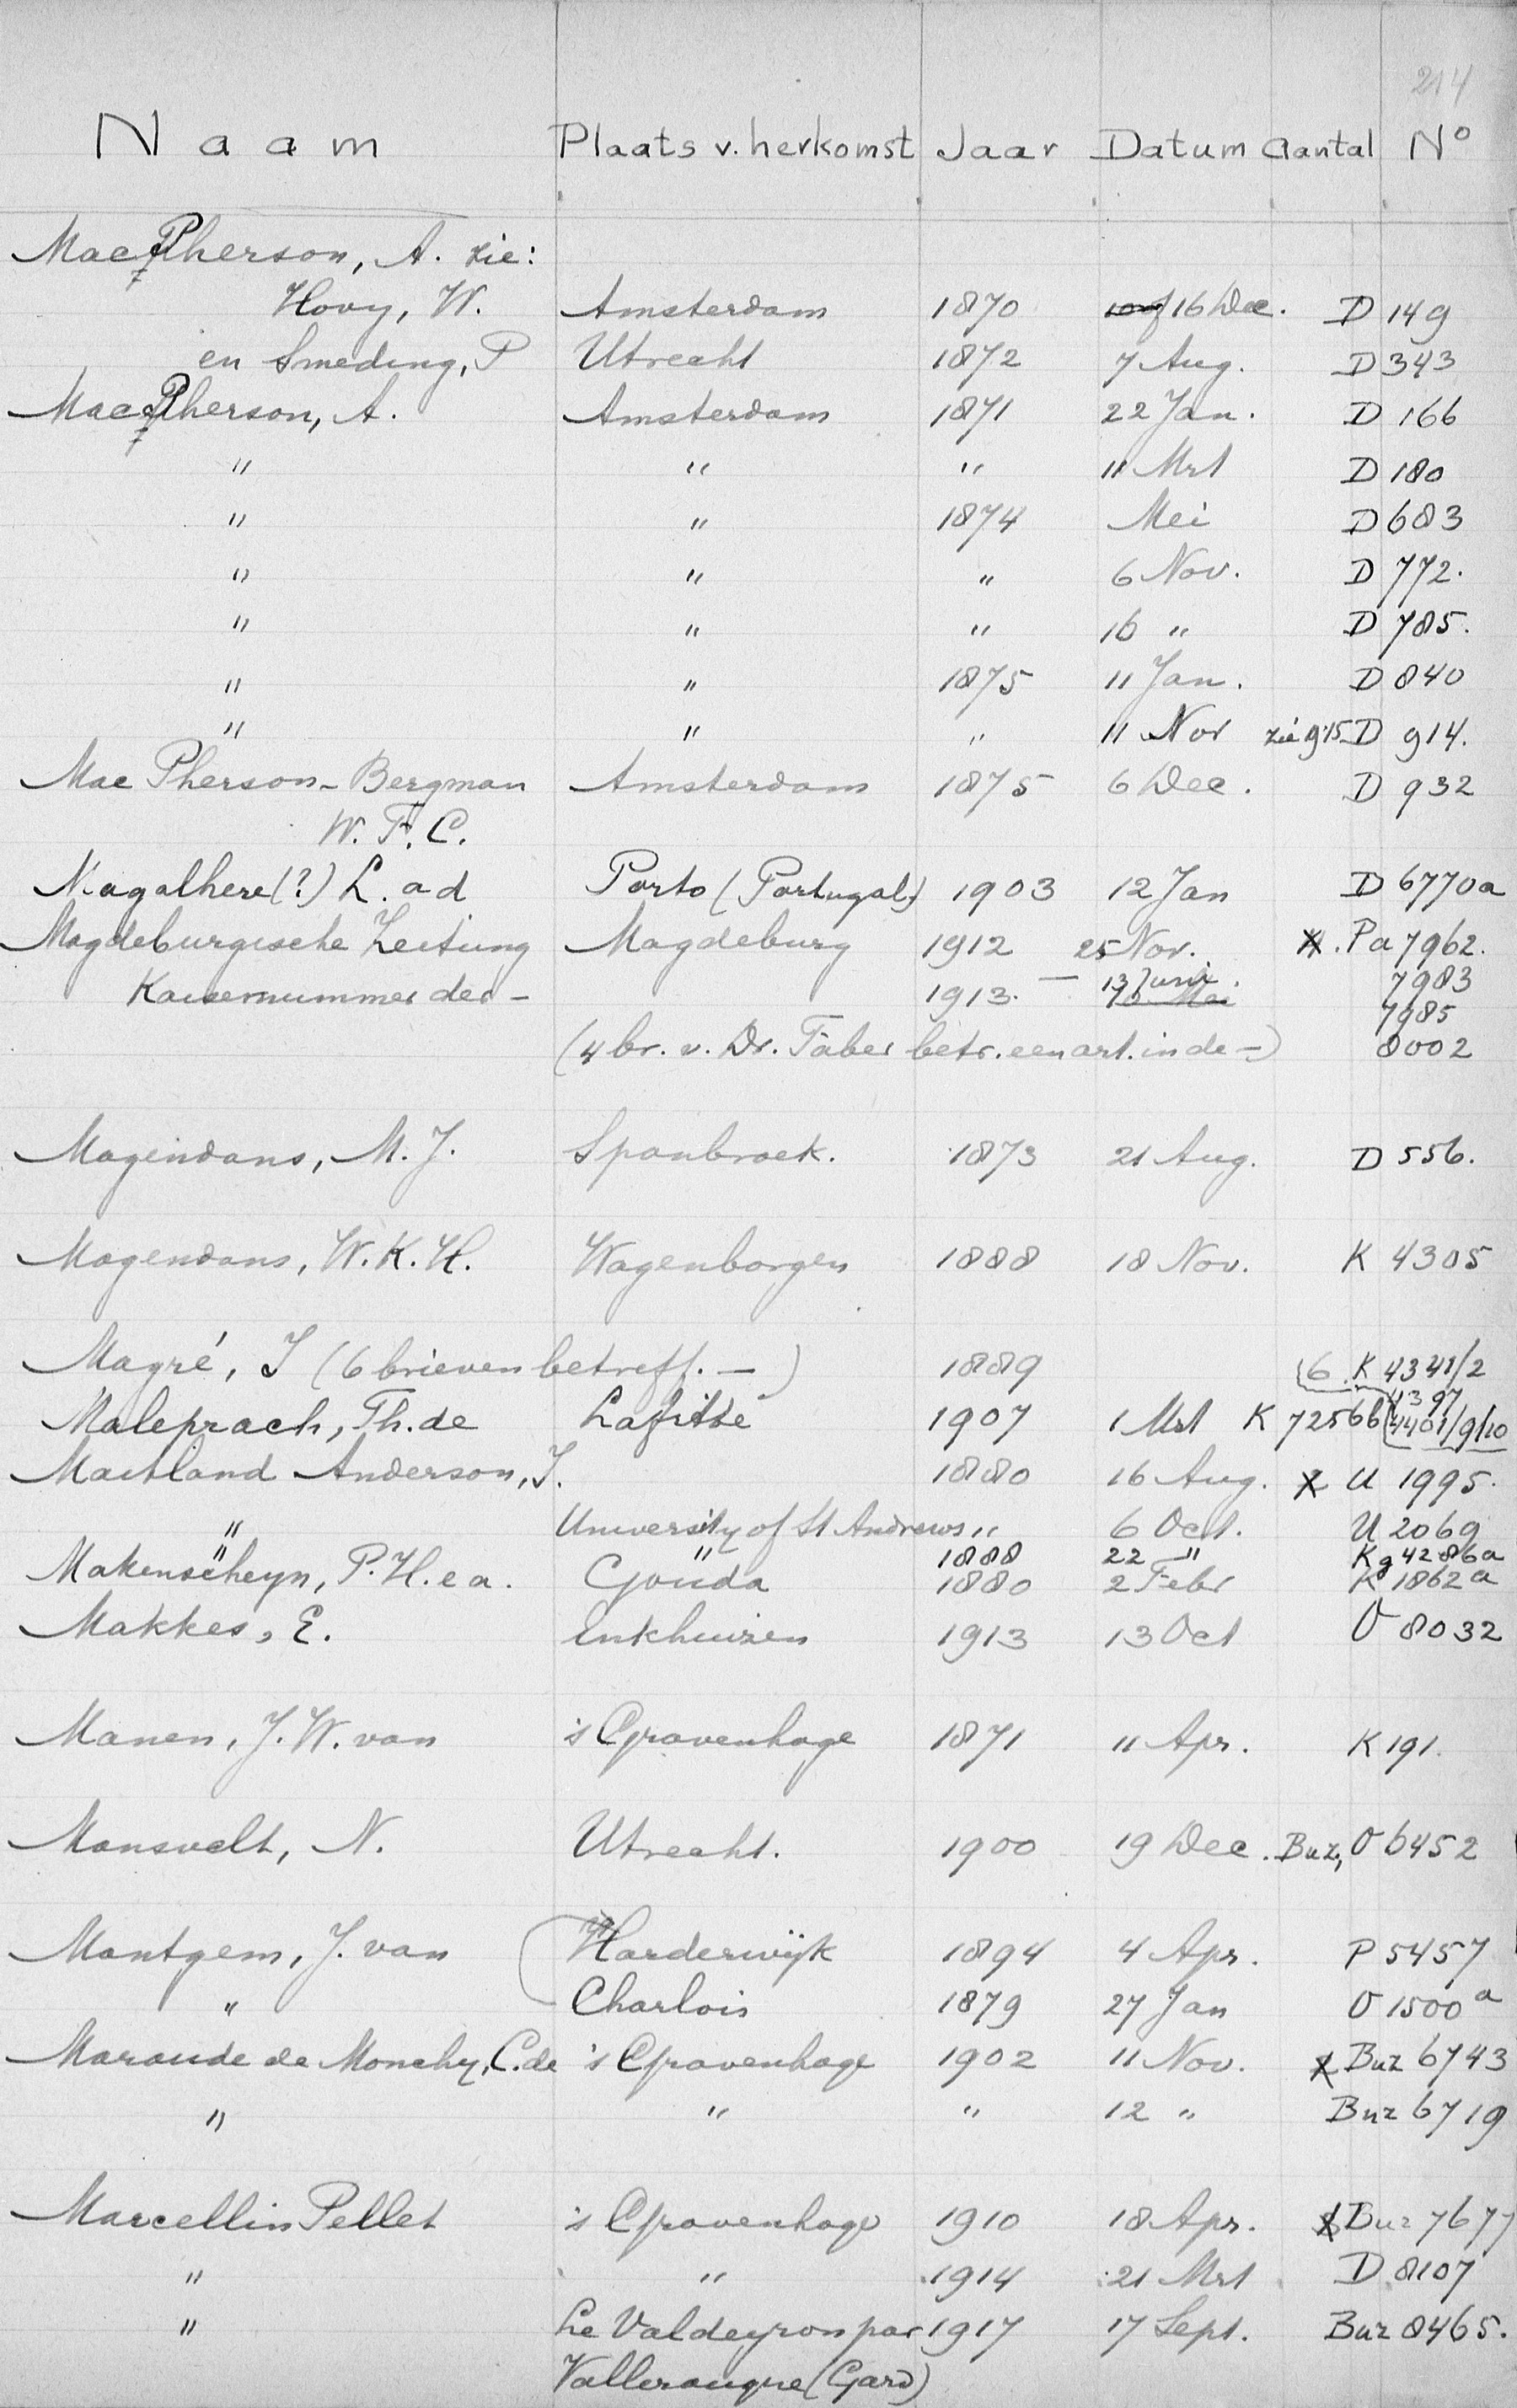 214
Naam Plaats v. herkomst Jaar Datum Aantal No
Mac Pherson, A. zie:
Hovy, W. Amsterdam 1870 16 Dec. D 149
en Smeding, P Utrecht 1872 7 Aug. D 343
Mac Pherson, A. Amsterdam 1871 22 Jan. D 166
" " " 11 Mrt D 180
" " 1874 Mei D 683
" " " 6 Nov. D 772.
" " " 16 " D 785.
" " 1875 11 Jan. D 840
" " " 11 Nov zie 915 D 914.
Mac Pherson-Bergman Amsterdam 1875 6 Dec. D 932
W. F. C.
Magalhere(?) L. ad Porto (Portugal) 1903 12 Jan D 6770a
Magdeburgische Zeitung Magdeburg 1912 25 Nov. Pa 7962.
Kaisernummer der - 1913. — 13 Juni 7983
7985
(4 br. v. Dr. Faber betr. een art. in de -) 8002
Magendans, M. J. Spanbroek. 1873 21 Aug. D 556.
Magendans, W. K. H. Wagenborgen 1888 18 Nov. K 4305
Magré, J (6 brieven betreff. —) 1889 6 K 4341/2
4397
Maleprach, Th. de Lafitte 1907 1 Mrt K 7256b 4401/9/10
Maitland Anderson, J. 1880 16 Aug. U 1995.
" University of St Andrews " 6 Oct. U 2069
" " 1888 22 " Kg 4286a
Makenscheyn, P. H. e a. Gouda 1880 2 Febr K 1862a
Makkes, E. Enkhuizen 1913 13 Oct O 8032
Manen, J. W. van 's Gravenhage 1871 11 Apr. K 191.
Mansvelt, N. Utrecht. 1900 19 Dec. Buz, O 6452
Mantgem, J. van Harderwijk 1894 4 Apr. P 5457
" Charlois 1879 27 Jan O 1500a
Maraude de Monchy, C. de 's Gravenhage 1902 11 Nov. Buz 6743
" " " 12 " Buz 6719
Marcellin Pellet 's Gravenhage 1910 18 Apr. Buz 7677
" " 1914 21 Mrt D 8107
" Le Valdeyron par 1917 17 Sept. Buz 8465.
Valleraugue (Gard)